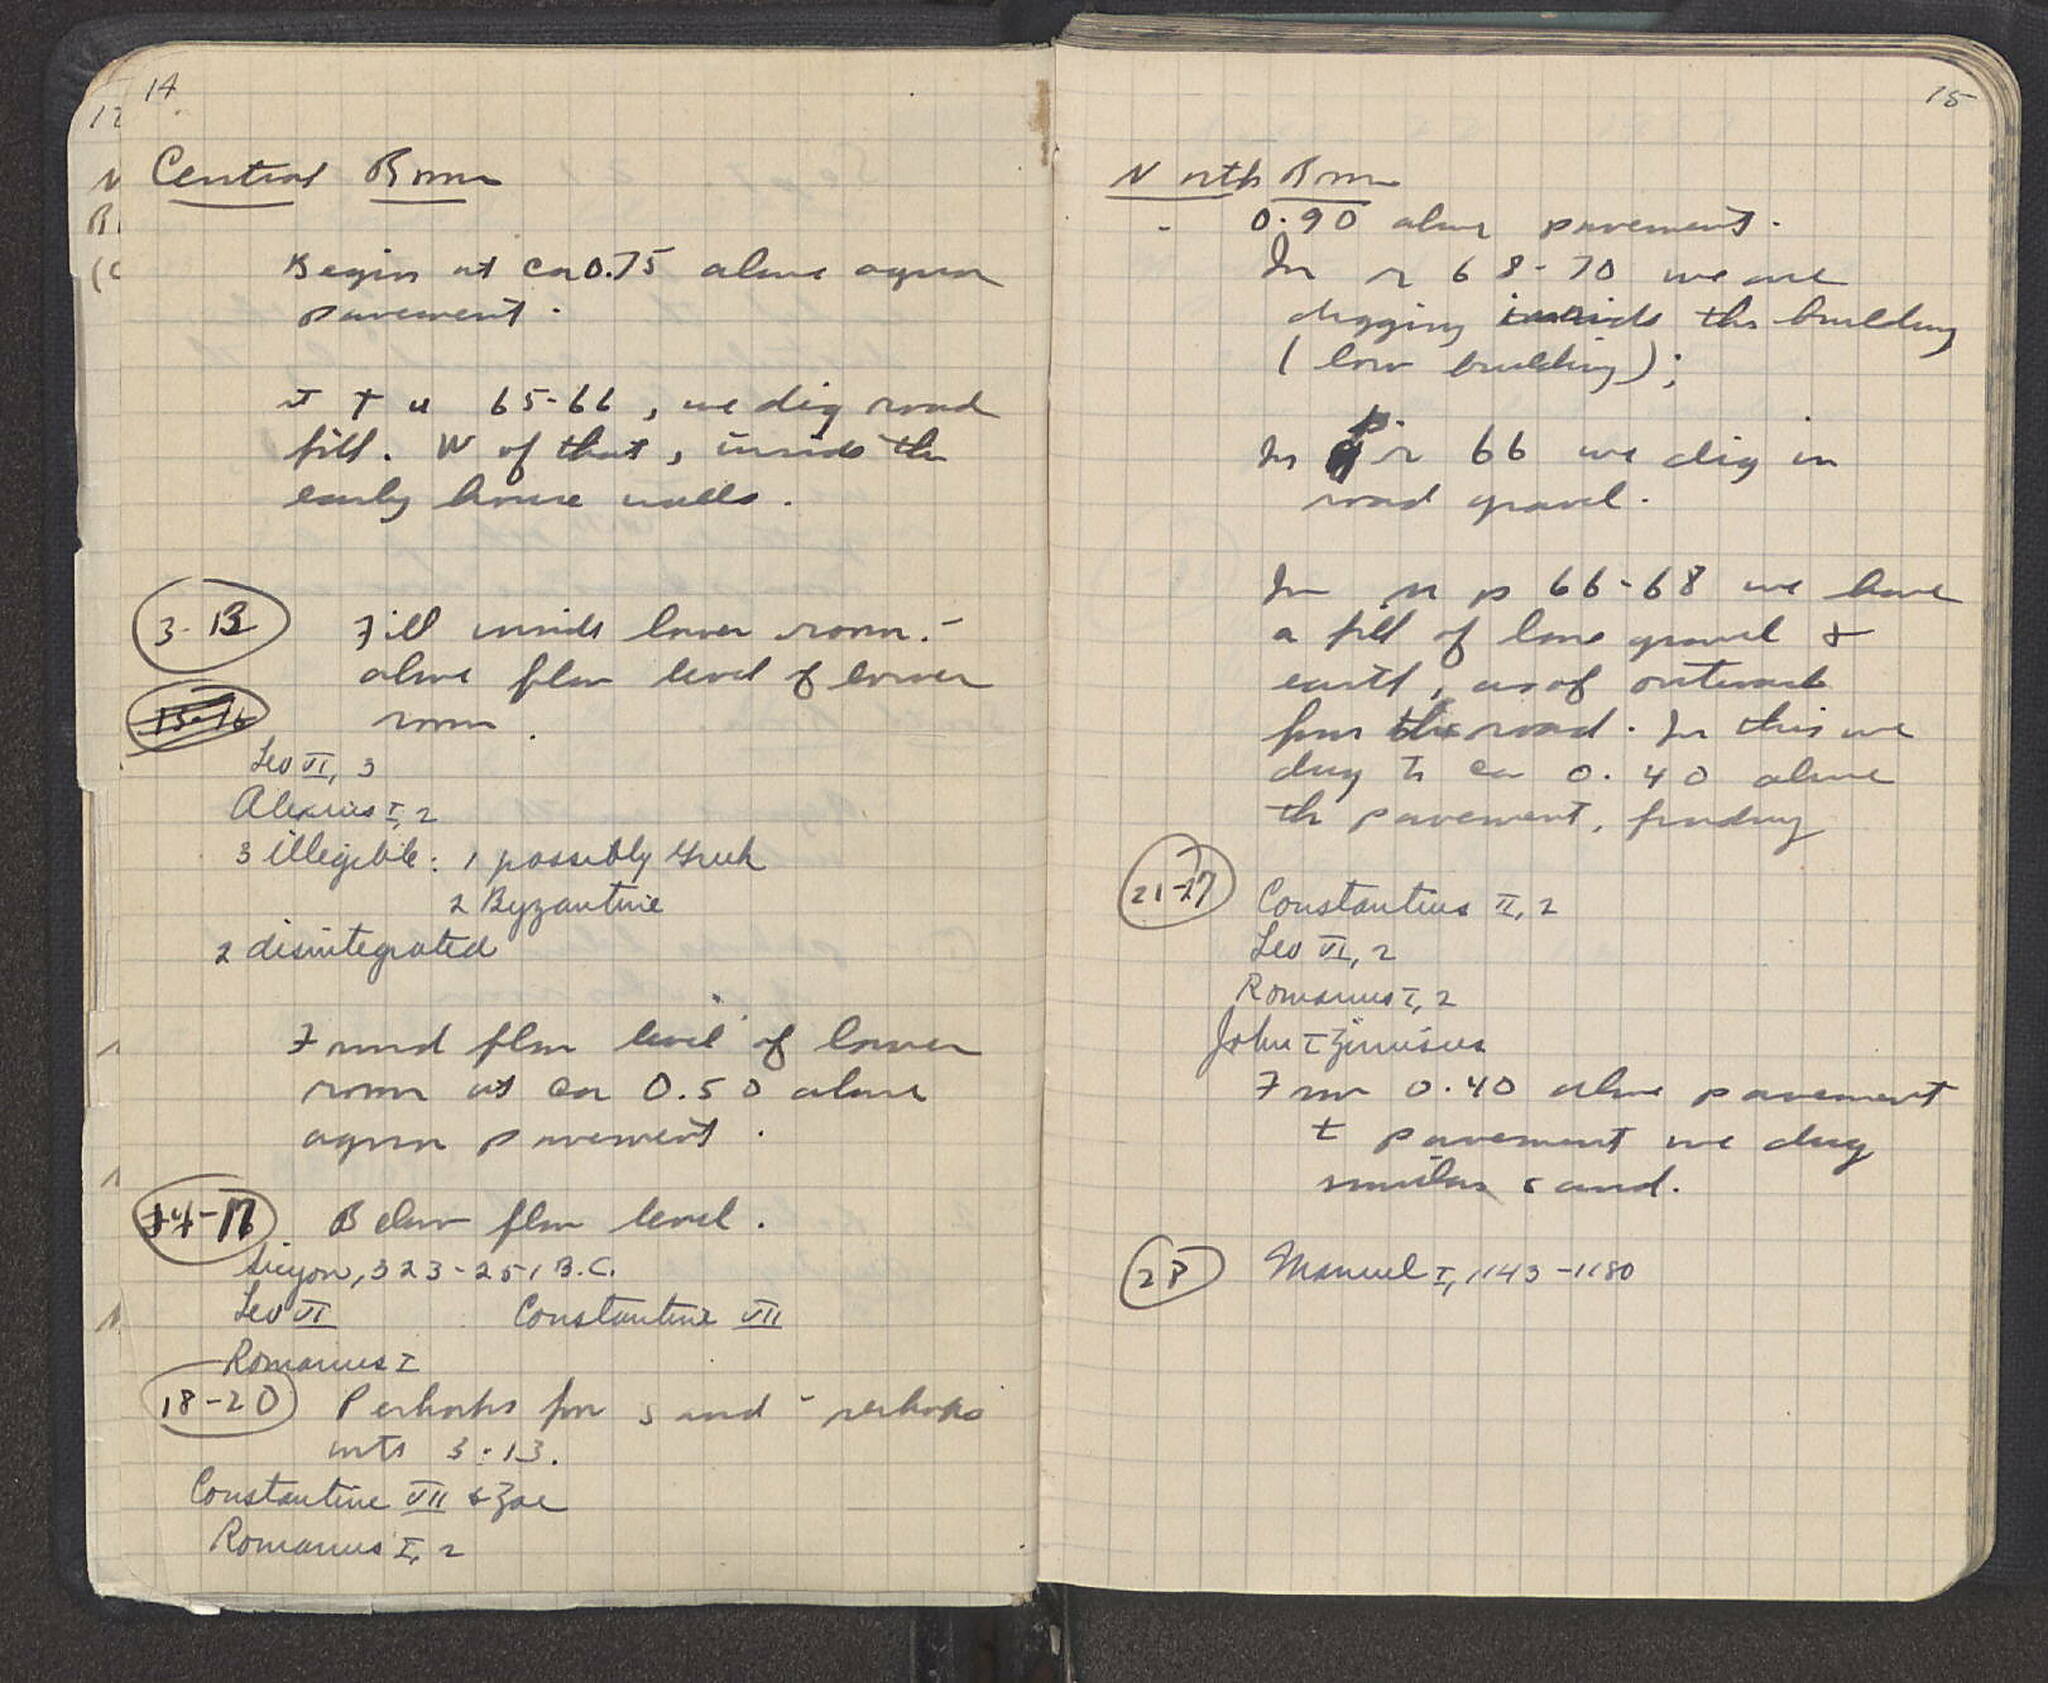 14
Central Room
Begin at ca 0.75 above agora
pavement.
t + u 65-66, we dig road
fill. W of that, inside the
early house walls.
3-13 Fill inside lower room.-
above floor level of lower
15-16 room.
Leo VI, 3
Alexius I, 2
3 illegible: 1 possibly Greek
2 Byzantine
2 disintegrated
Found floor level of lower
room at ca 0.50 above
agora pavement.
14-17 Below floor level.
Sicyon, 323-251 B.C.
Leo VI Constantine VII
Romanus I
18-20 Perhaps from sand - perhaps
into 3-13.
Constantine VII & Zoe
Romanus I, 2
15
North Room
0.90 above pavement.
In r 68-70 we are
digging inside the building
(low building);
In p. r 66 we dig in
road gravel.
In n p 66-68 we have
a fill of loose gravel &
earth, as of outwash
from the road. In this we
dug to ca 0.40 above
the pavement, finding
21-27 Constantius II, 2
Leo VI, 2
Romanus I, 2
John I Zimisces
From 0.40 above pavement
to pavement we dug
similar sand.
28 Manuel I, 1143-1180